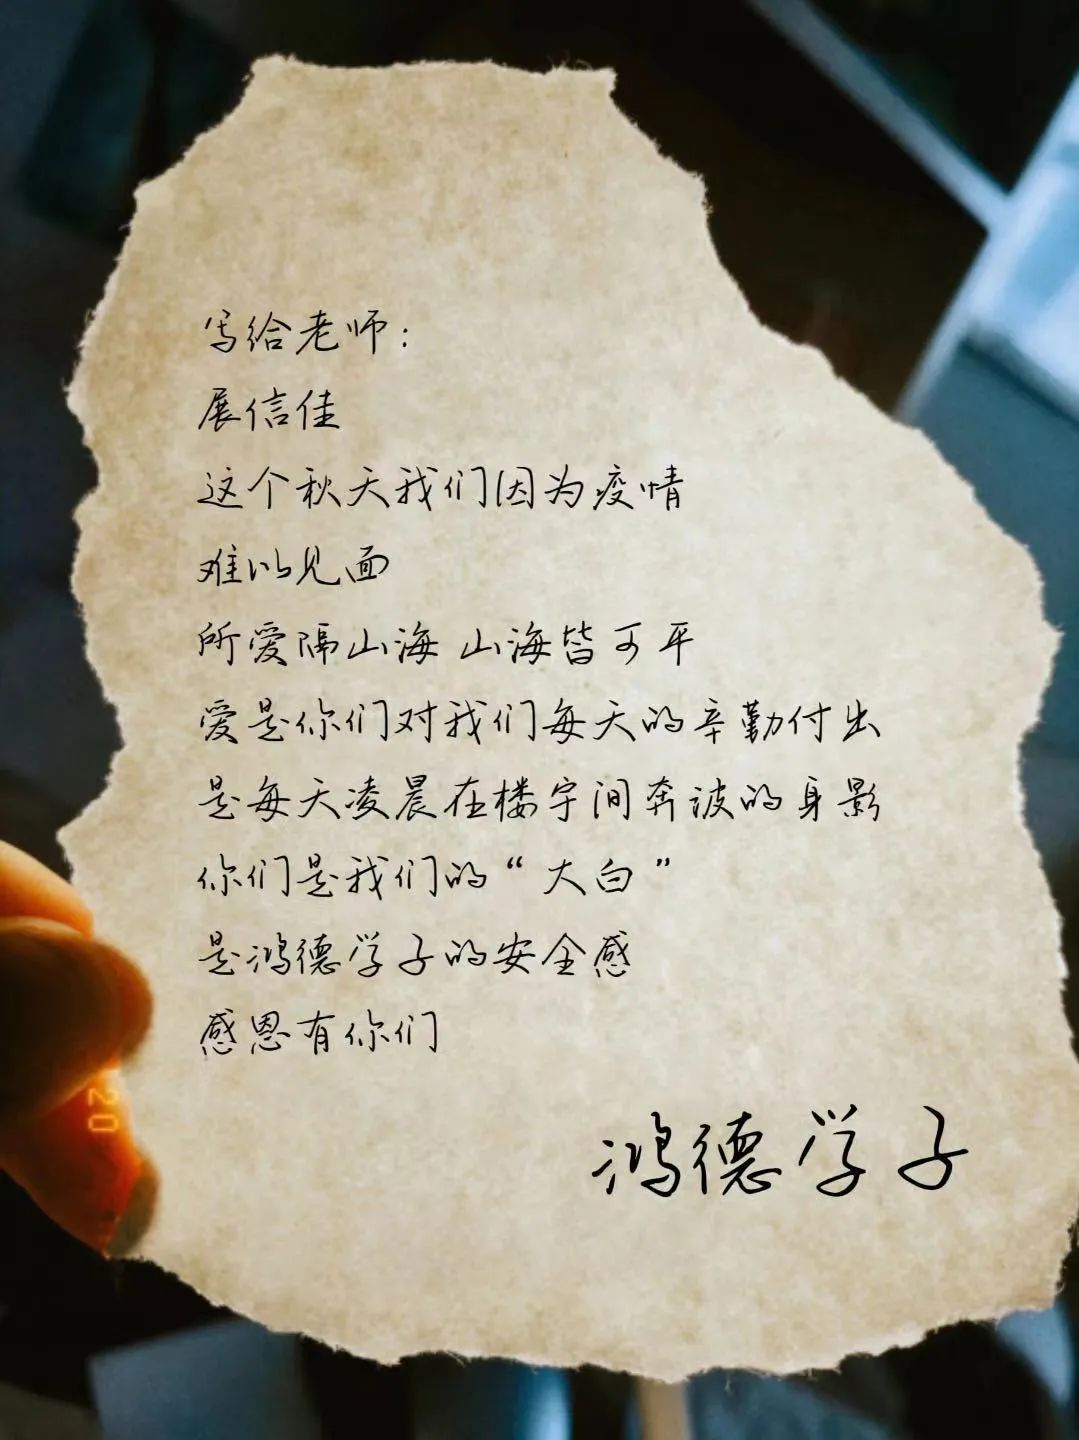 写给老师：
展信佳
这个秋天我们因为疫情
难以见面
所爱隔山海 山海皆可平
爱是你们对我们每天的辛勤付出
是每天凌晨在楼宇间奔波的身影
你们是我们的“大白”
是鸿德学子的安全感
感恩有你们
鸿德学子
20